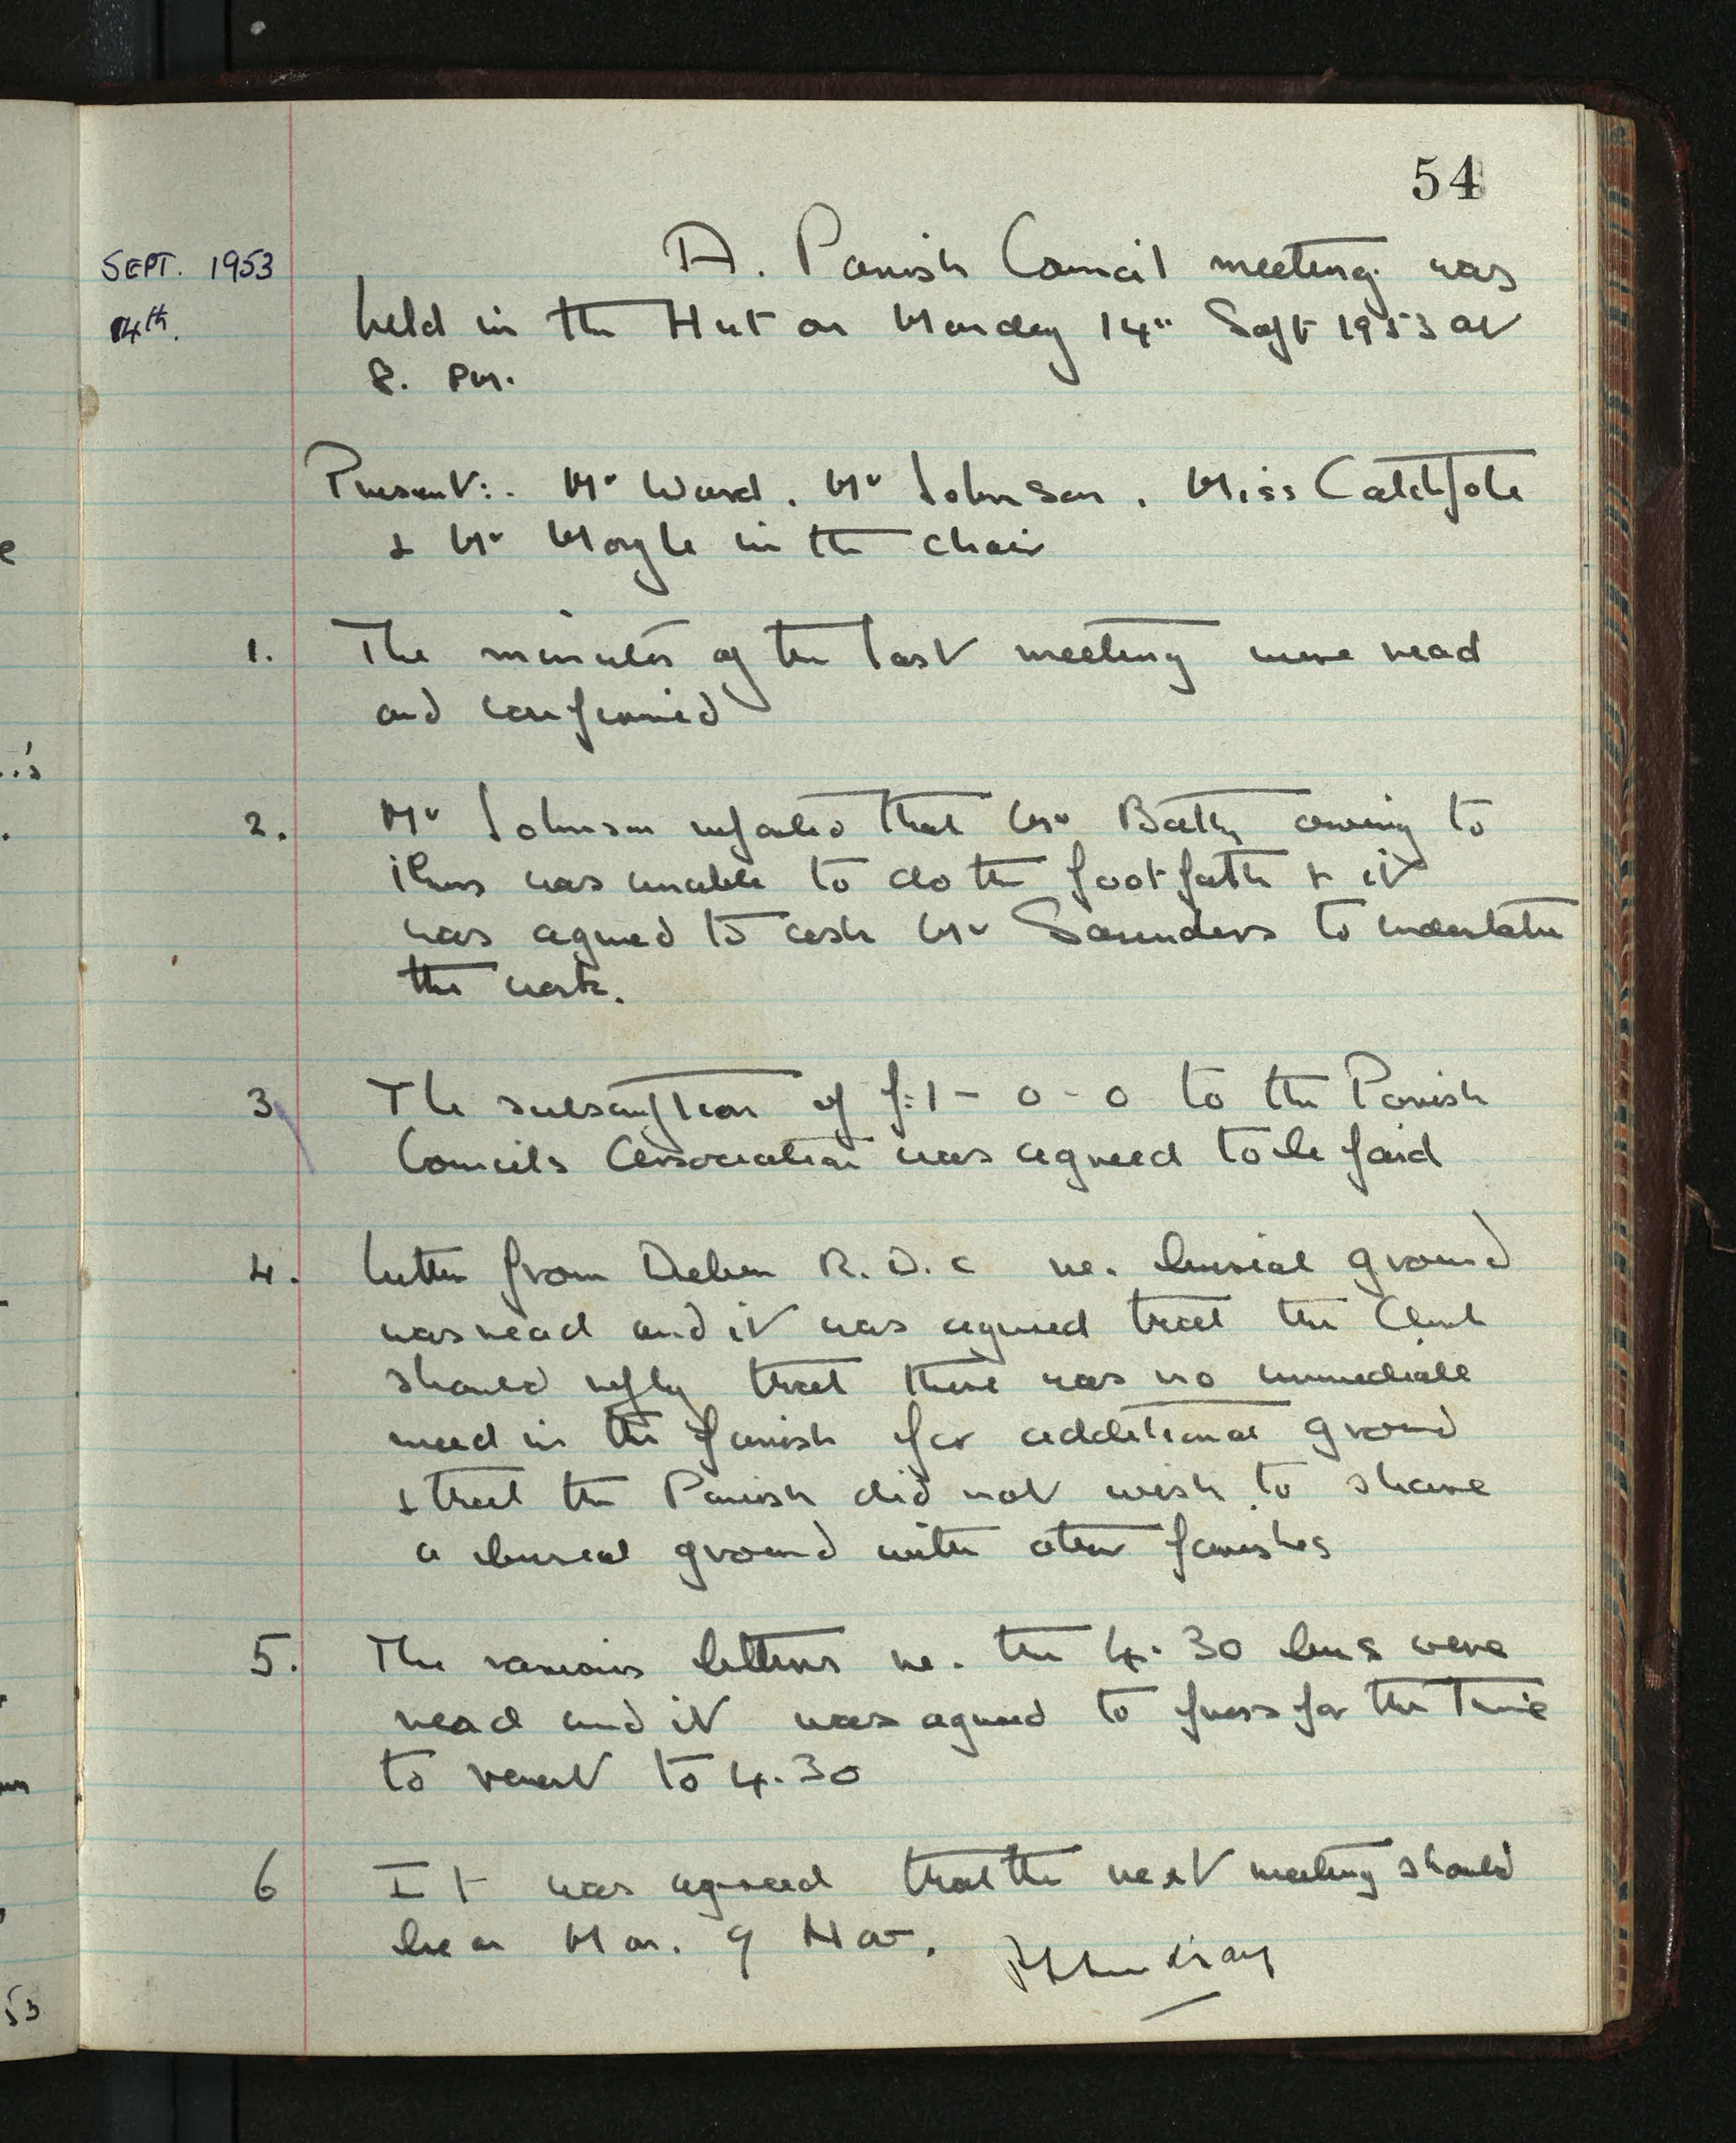 54
SEPT. 1953
14th.
A. Parish Council meeting was
held in the Hut on Monday 14" Sept 1953 at
8. pm.
Present:. Mr Ward. Mr Johnson. Miss Catchpole
& Mr Moyle in the chair
1. The minutes of the last meeting were read
and confirmed
2. Mr Johnson reported that Mr owing to
illness was unable to do the footpath & it
was agreed to ask Mr Saunders to undertake
the work.
3 The subscription of £1-0-0 to the Parish
Councils Association was agreed to be paid
4. Letter from Deben R.D.C re. burial ground
was read and it was agreed that the Clerk
should reply that there was no immediate
need in the parish for additional ground
& that the Parish did not wish to share
a burial ground with other parishes
5. The various letters re. the 4.30 bus were
read and it was agreed to press for the time
to revert to 4.30
6 It was agreed that the next meeting should
be on Mon. 9 Nov.
53